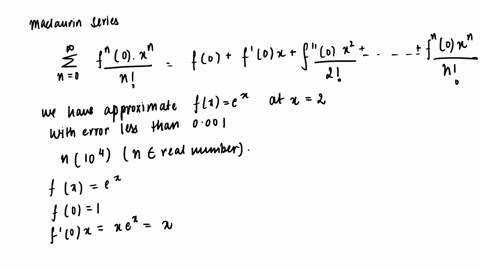 Maclaurin Series
∞ Σ n=0 fⁿ(0). xⁿ / n! = f(0) + f'(0)x + f''(0) x² / 2! + - . - - - ± fⁿ(0)xⁿ / n!
we have approximate f(x) = eˣ at x = 2
with error less than 0.001
n(10⁴) (n ∈ real number).
f(x) = eˣ
f(0) = 1
f'(0)x = xeˣ = x